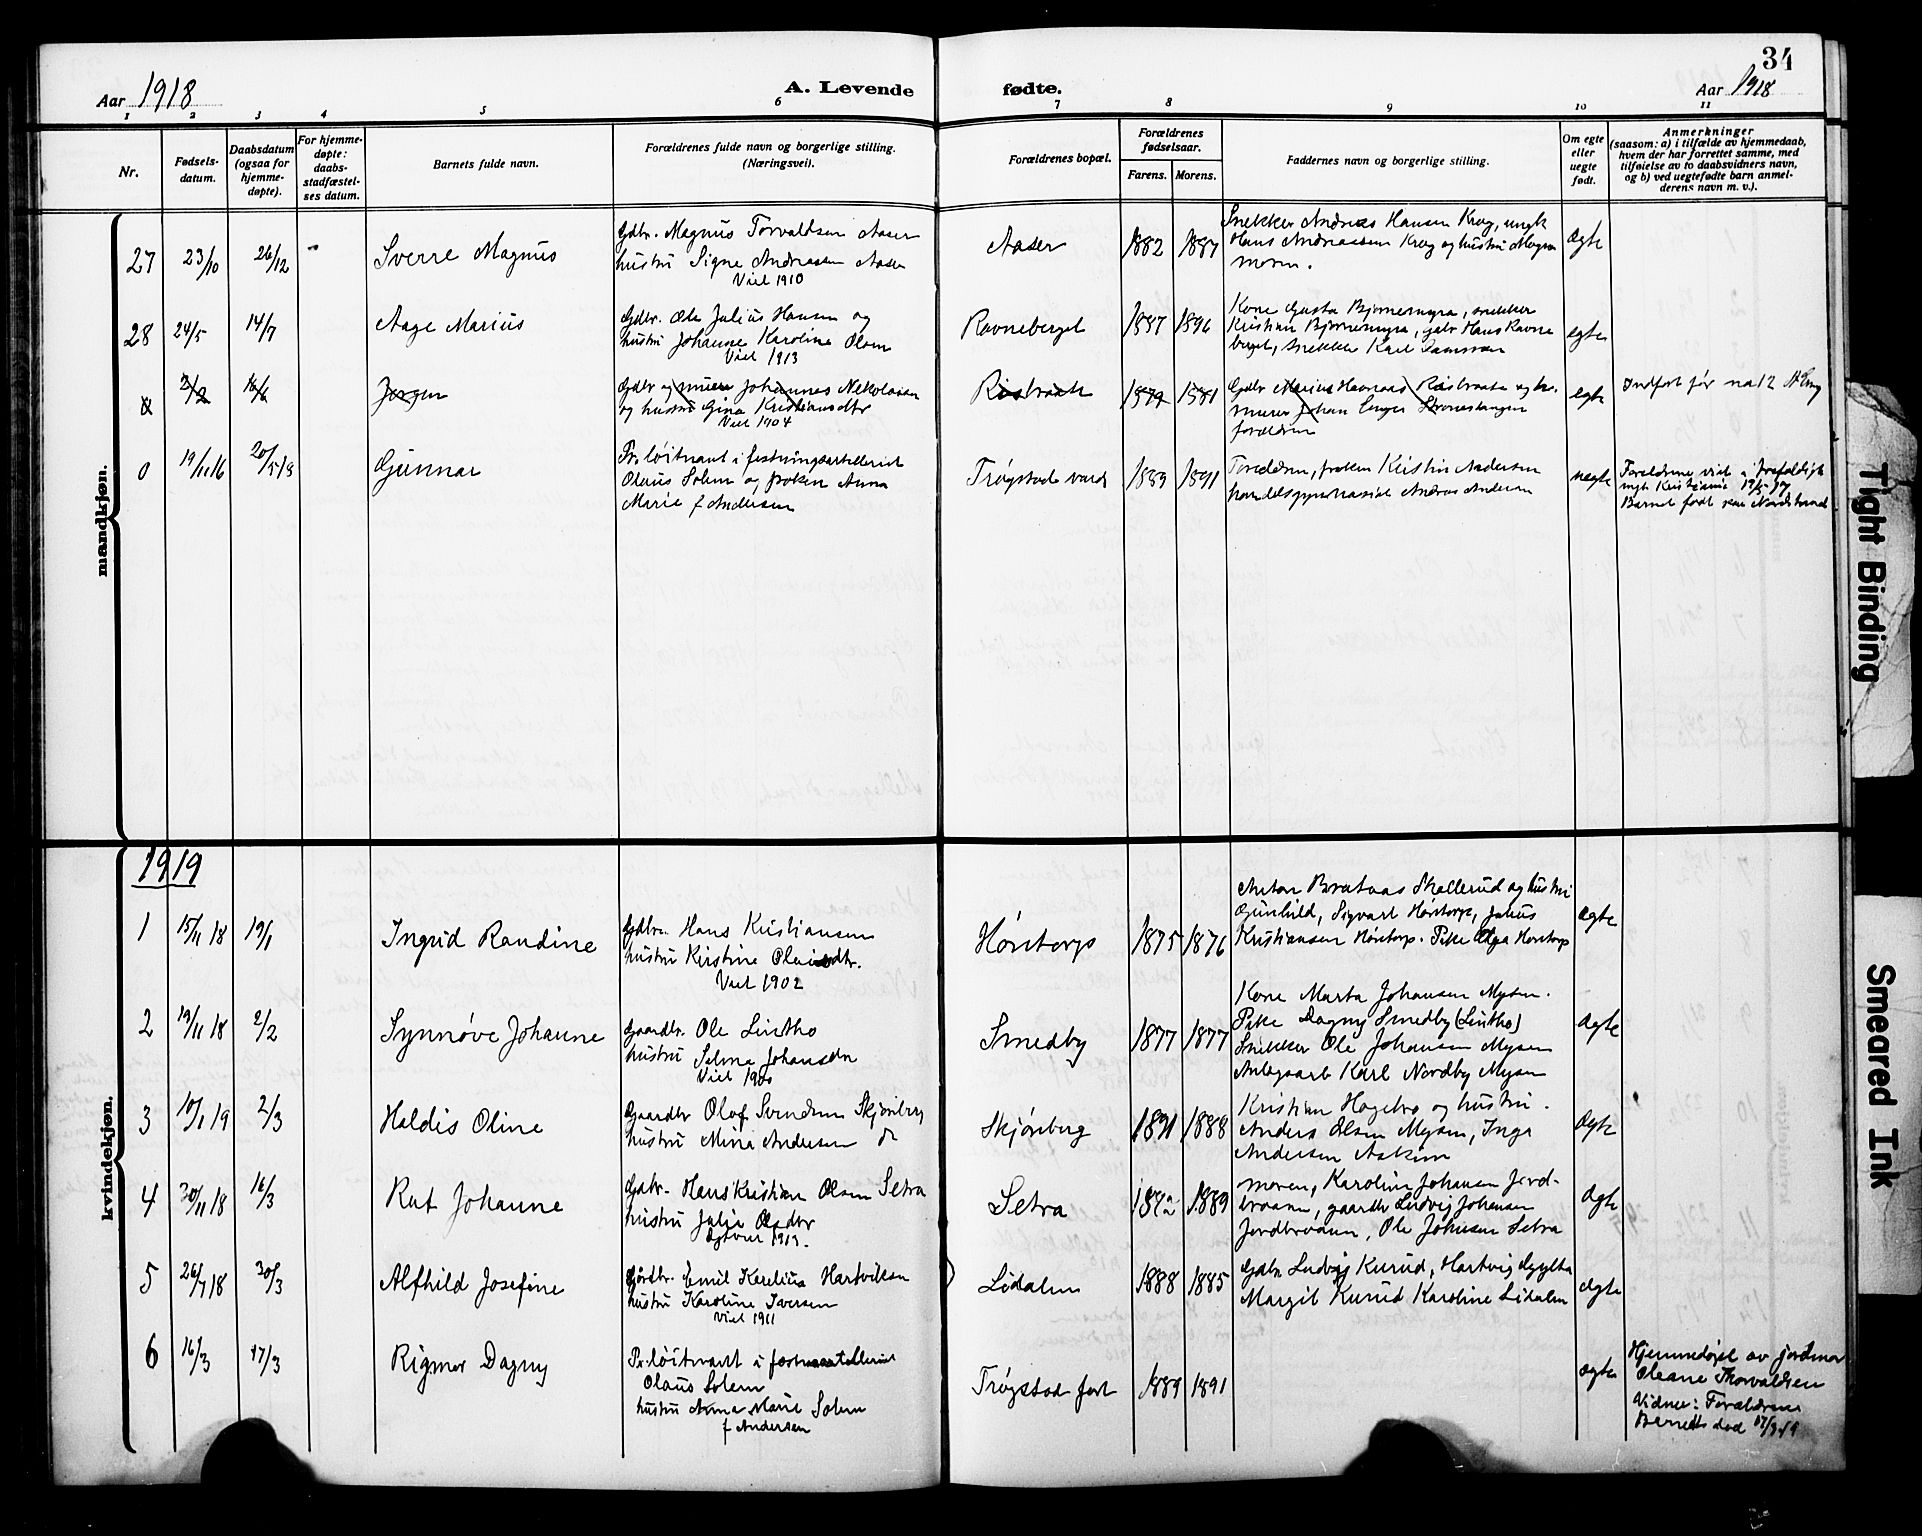 34
Aar 1918
A. Levende fødte.
Aar 1918
1 2 3 4 5 6 7 8 9 10 11
Nr.
Fødsels-
datum.
Daabsdatum
(ogsaa for
hjemme-
døpte).
For hjemme-
døpte:
daabs-
stadfæstel-
ses datum.
Barnets fulde navn.
Forældrenes fulde navn og borgerlige stilling.
(Næringsvei).
Forældrenes bopæl.
Forældrenes
fødselsaar.
Farens. Morens.
Faddernes navn og borgerlige stilling.
Om egte
eller
uegte
født.
Anmerkninger
(saasom: a) i tilfælde av hjemmedaab,
hvem der har forrettet samme, med
tilføielse av to daabsvidners navn,
og b) ved uegtefødte barn anmel-
derens navn m. v.).
mandkjøn.
27 23/10 26/12
Sverre Magnus
Gdbr. Magnus Torvaldsen Aaser
hustru Signe Andreassen Aaser
Viet 1910
Aaser
1882 1887
Snekker Andreas Hansen Krog, ungk
Hans Andreassen Krog og hustru Magna
moren.
Ægte
28 24/5 14/7
Aage Marius
Gdbr. Ole Julius Hansen og
hustru Johanne Karoline Olsen
Viet 1913
Ravneberget
1887 1896
Kone Gusta Bjørnemyra, snekker
Kristian Bjørnemyra, gdbr Hans Ravne
berget, snekker Karl
egte
Jørgen
Gdbr og murer Johannes Nikolaisen
og hustru Gina Kristiansdtr
Viet 1904
1879 1881
murer Johan
forældrene
egte
Indført før na 12
0 19/11 16 20/5 18
Gunnar
Pr. løitnant i festningsartilleriet
Olaus Solem og frøken Anna
Marie f Andersen
Trøgstad
1889 1891
Forældrene, frøken Kristin Andersen
handelsgymnasiast Andreas Andersen
uegte
Forældrene viet i
Kristiania
Barnet født paa Nordstrand
kvindekjøn.
1919
1 15/11 18 19/1
Ingrid Randine
Gdbr. Hans Kristiansen
hustru Kirstine
Viet 1902
Høntorp
1875 1876
Anton Brataas Skallerud og hustru
Gunhild, Sigvart Høntorp, Julius
Kristiansen Høntorp. Pike Olga Høntorp
Ægte
2 19/11 18 2/2
Synnøve Johanne
Gaardbr. Ole Lintho
hustru Selma Johansdtr
Viet 1900
Smedby
1877 1877
Kone Marta Johansen Mysen.
Pike Dagny Smedby (Lintho)
Snikker Ole Johansen Mysen
Anlegsarb Karl Nordby Mysen
Ægte
3 10/1 19 2/3
Haldis Oline
Gaardbr Olaf Svendsen Skjønberg
hustru Mina Andersen
Skjønberg
1891 1888
Kristian Hagebro og hustru.
Anders Olsen Mysen, Inga
Andersen Askim
Ægte
4 30/11 18 16/3
Rut Johanne
Gdbr. Hans Kristian Olsen Setra
hustru Julia Olsdtr
Setra
1889
moren, Karoline Johansen Jord-
braaten, gaardbr Ludvig Johansen
Jordbraaten, Ole Johnsen Setra
Ægte
5 26/7 18 30/3
Alfhild Josefine
Emil Kornelius Hartviksen
hustru Karoline Iversen
Viet 1911
Lidalen
1888 1885
Gdbr Ludvig Kurud, Hartvig
Margit Kurud Karoline Lidalen
Ægte
6 16/3 17/3
Rigmor Dagny
Pr. løitnant i
Olaus Solem
hustru Anna Marie Solem
f Andersen
Trøgstad fort
1889 1891
ægte
Hjemmedøpt av jordmor
Oleane Thorvaldsen
Vidner: Forældrene
Barnet død 17/3 19
Tight Binding
Smeared Ink